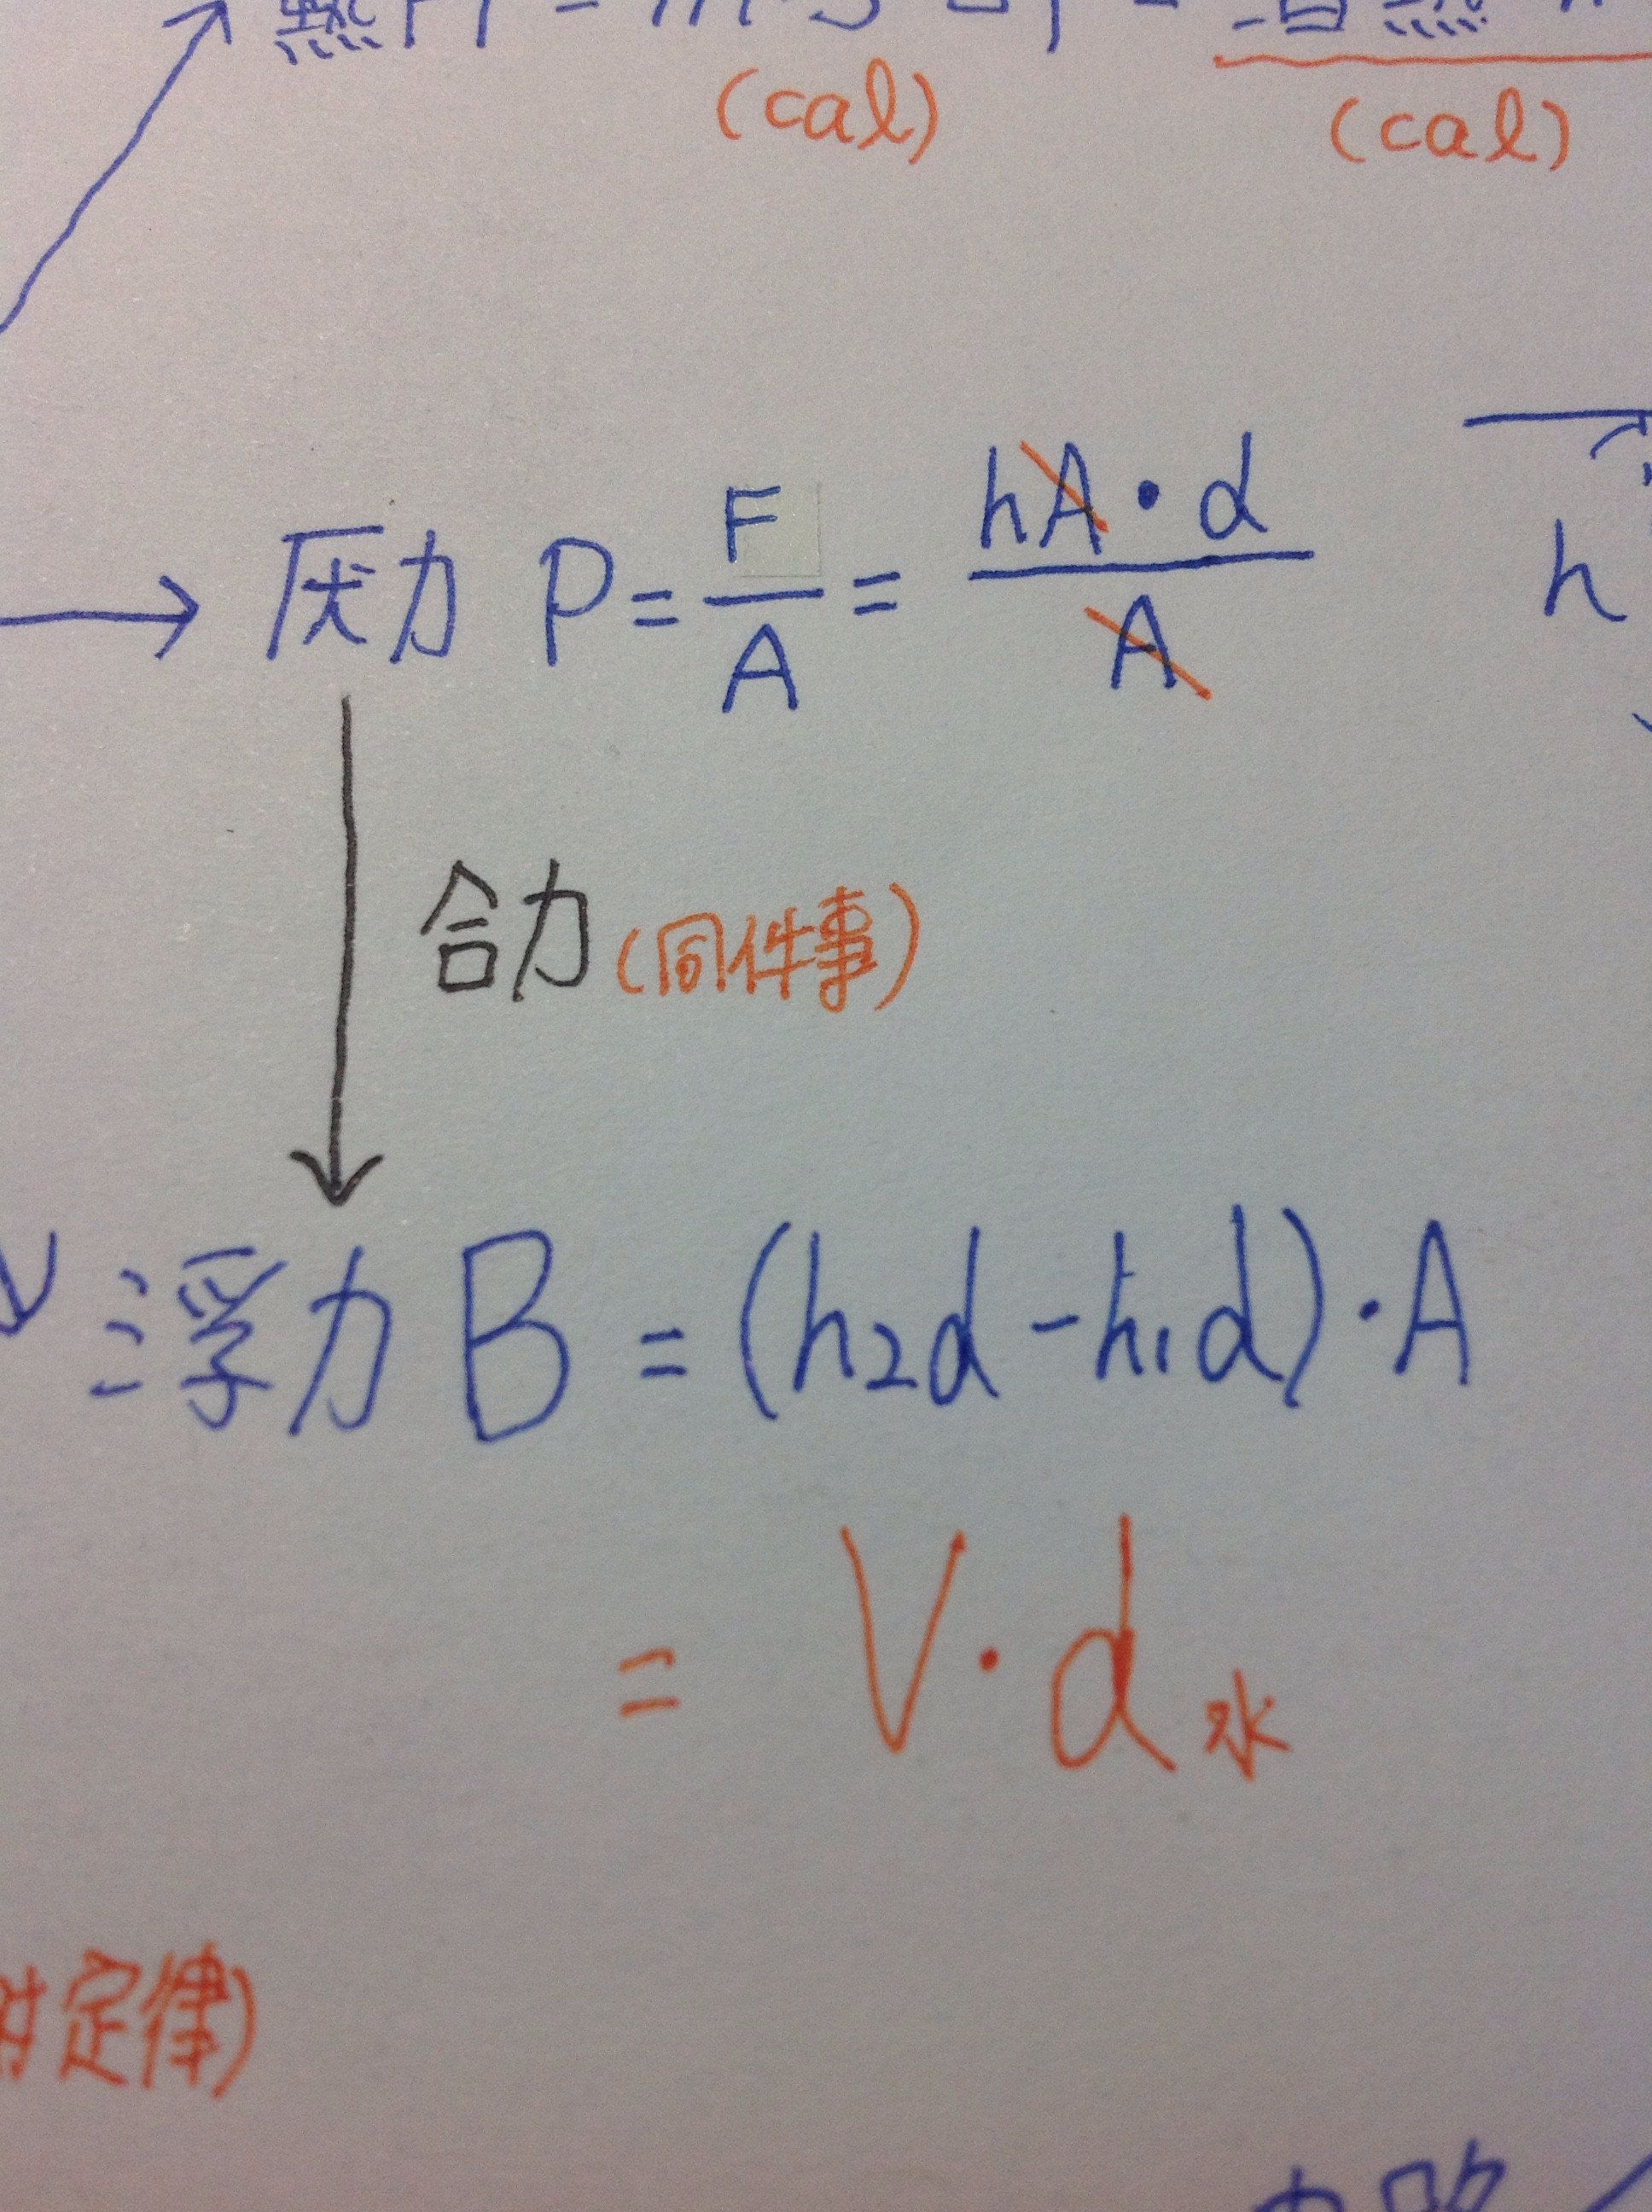 (cal) (cal)
压力 P = F/A = hA・d/A h
合力(同件事)
浮力 B = (h₂d - h₁d)・A
= V・d水
定律)